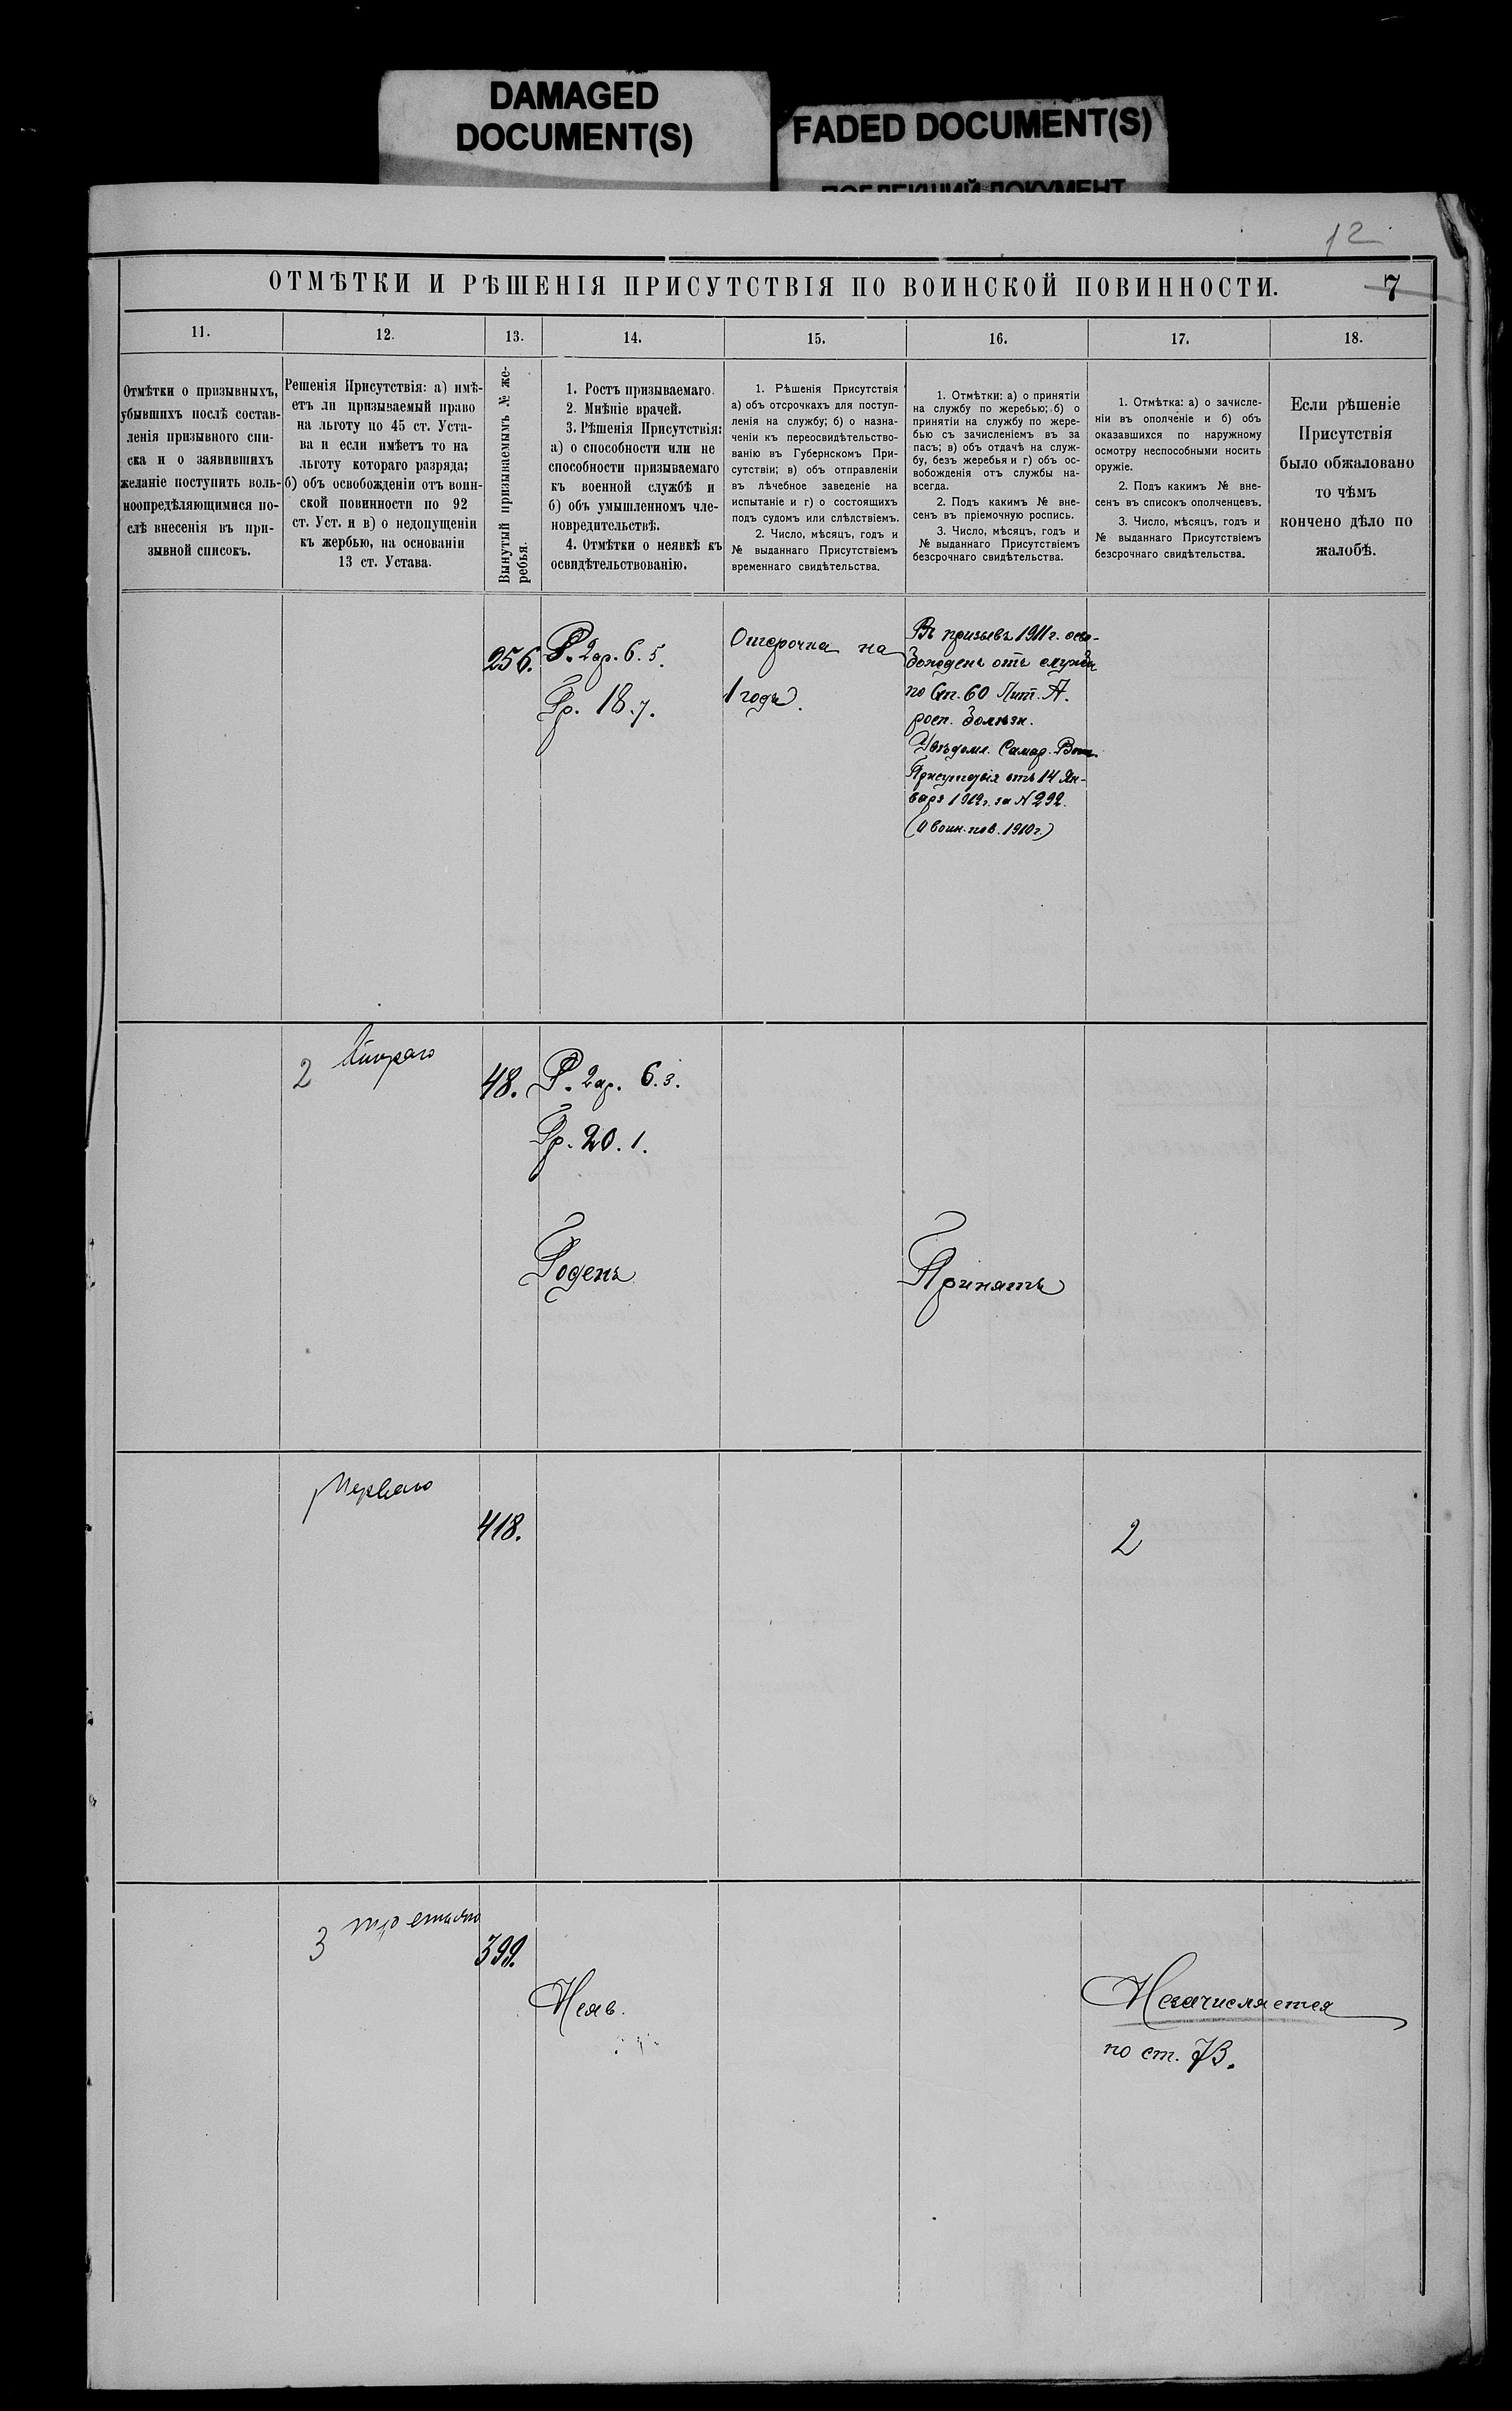 DAMAGED
DOCUMENT(S)
FADED DOCUMENT(S)
12
ОТМѢТКИ И РѢШЕНІЯ ПРИСУТСТВІЯ ПО ВОИНСКОЙ ПОВИННОСТИ.
7
11.
12.
13.
14.
15.
16.
17.
18.
Отмѣтки о призывныхъ,
убывшихъ послѣ состав-
ленія призывного спи-
ска и о заявившихъ
желаніе поступить воль-
ноопредѣляющимися по-
слѣ внесенія въ при-
зывной списокъ.
Решенія Присутствія: а) имѣ-
етъ ли призываемый право
на льготу по 45 ст. Уста-
ва и если имѣетъ то на
льготу котораго разряда;
б) объ освобожденіи отъ воин-
ской повинности по 92
ст. Уст. и в) о недопущеніи
къ жербью, на основаніи
13 ст. Устава.
Вынутый призываемымъ № же-
ребья.
1. Ростъ призываемаго.
2. Мнѣніе врачей.
3. Рѣшенія Присутствія:
а) о способности или не
способности призываемаго
къ военной службѣ и
б) объ умышленномъ чле-
новредительствѣ.
4. Отмѣтки о неявкѣ къ
освидѣтельствованію.
1. Рѣшенія Присутствія
а) объ отсрочкахъ для поступ-
ленія на службу; б) о назна-
ченіи къ переосвидѣтельство-
ванію въ Губернскомъ При-
сутствіи; в) объ отправленіи
въ лѣчебное заведеніе на
испытаніе и г) о состоящихъ
подъ судомъ или слѣдствіемъ.
2. Число, мѣсяцъ, годъ и
№ выданнаго Присутствіемъ
временнаго свидѣтельства.
1. Отмѣтки: а) о принятіи
на службу по жеребью; б) о
принятіи на службу по жере-
бью съ зачисленіемъ въ за
пасъ; в) объ отдачѣ на служ-
бу, безъ жеребья и г) объ ос-
вобожденія отъ службы на-
всегда.
2. Подъ какимъ № вне-
сенъ въ пріемочную роспись.
3. Число, мѣсяцъ, годъ и
№ выданнаго Присутствіемъ
безсрочнаго свидѣтельства.
1. Отмѣтка: а) о зачисле-
ніи въ ополченіе и б) объ
оказавшихся по наружному
осмотру неспособными носить
оружіе.
2. Подъ какимъ № вне-
сенъ въ списокъ ополченцевъ.
3. Число, мѣсяцъ, годъ и
№ выданнаго Присутствіемъ
безсрочнаго свидѣтельства.
Если рѣшеніе
Присутствія
было обжаловано
то чѣмъ
кончено дѣло по
жалобѣ.
256.
Р. 2 ар. 6. 5.
Гр. 18. 7.
Отсрочка на
1 годъ.
Въ призывъ 1911 г. осво-
божденъ отъ службы
по Ст. 60 Лит. А.
росп. болѣзн.
Увѣдомл. Самар. Воин.
Присутствія отъ 14 Ян-
варя 1912 г. за № 292.
(О воин. пов. 1910 г.)
2 Второго
48.
Р. 2 ар. 6. 3.
Гр. 20. 1.
Годенъ
Принятъ
Перваго
418.
2
3 третьяго
399.
Неяв.
Незачисляется
по ст. 73.